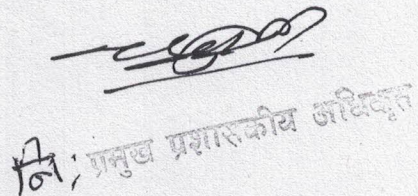 नि; प्रमुख प्रशासकीय अधिकृत